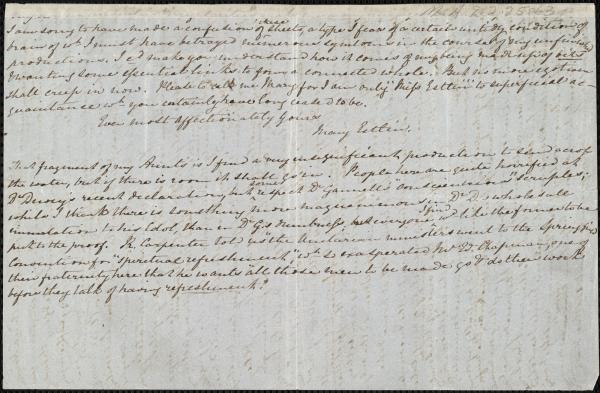 I am sorry to have made a confusion of these sheets, a type I fear of a certain untidy condition of
brain of wh. I must have betrayed numerous symptoms in the course of my confused
productions. I could make you understand how it comes of my being made up of bits
& wanting some essential links to form a connected whole. But no more egotism
shall creep in now. Please to call me Mary for I am only Miss Estlin to superficial ac-
quaintance wh. you certainly have long ceased to be.
Ever most affectionately Yours
Mary Estlin.
That fragment of my Aunt's is I find a very insignificant production to send across
the water, but if there is room it shall go in. People here are quite horrified at
Dr. Dewey's recent declaration, but some respect Dr. Gannett's "conscientious" scruples;
while I think there is something more magnanimous in Dr. D's wholesale
immolation to his Idol, than in Dr. G's numbness but everyone I find wd. like the former to be
put to the proof. R. Carpenter told us the American ministers went to the Springfield
Convention for "spiritual refreshment," wh. so exasperated Mr. Ed. Chapman, one of
their fraternity here that he wants all those men to be made go & do their work
before they talk of having refreshment!